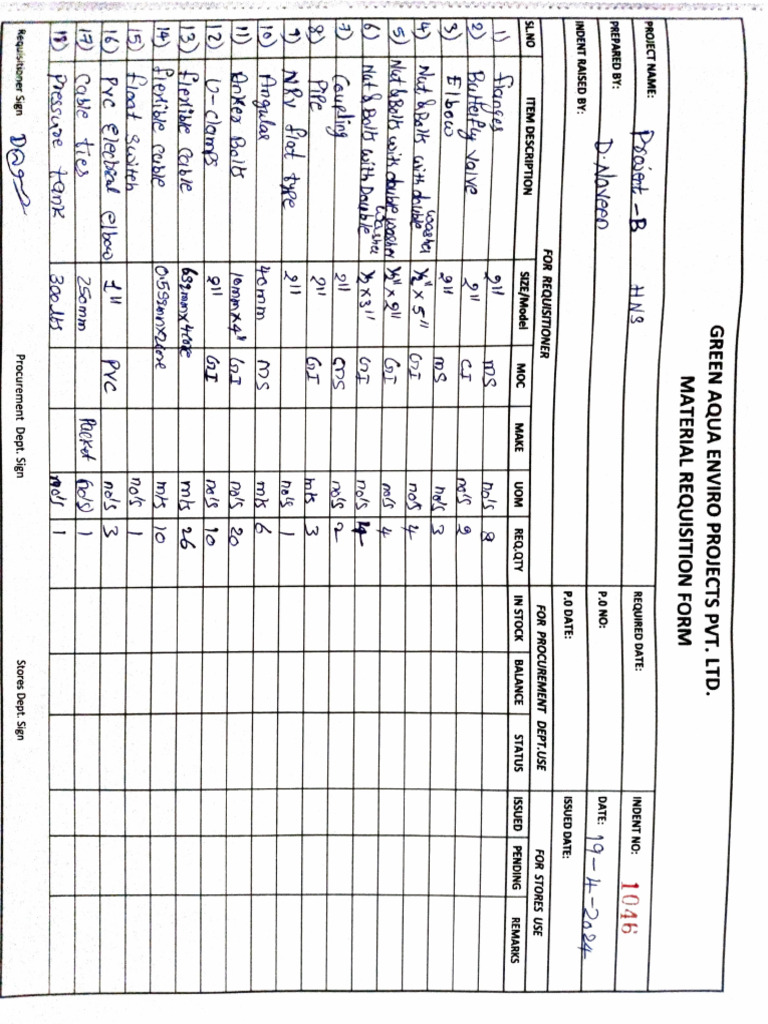 GREEN AQUA ENVIRO PROJECTS PVT. LTD.
MATERIAL REQUISITION FORM
PROJECT NAME: Project-B HNS REQUIRED DATE: INDENT NO: 1046
PREPARED BY: D. Naveen P.O NO: DATE: 19-4-2024
INDENT RAISED BY: P.O DATE: ISSUED DATE:
FOR REQUISITIONER FOR PROCUREMENT DEPT.USE FOR STORES USE
SL.NO ITEM DESCRIPTION SIZE/Model MOC MAKE UOM REQ.QTY IN STOCK BALANCE STATUS ISSUED PENDING REMARKS
1) flanges 2" MS no's 8
2) Butterfly valve 2" CI no's 2
3) Elbow 2" MS no's 3
4) Nut & Bolts with double washer ½" × 5" GI no's 4
5) Nut & Bolts with double washer ½" × 2" GI no's 4
6) Nut & Bolts with Double washer ½ × 3" GI no's 4
7) Coupling 2" MS no's 2
8) Pipe 2" GI mts 3
9) NRV flat type 2" no's 1
10) Angular 40mm MS mts 6
11) Anker Bolts 10mm×4" GI no's 20
12) U-clamps 2" GI no's 10
13) flexible cable mm×4core mts 26
14) flexible cable 0.5sqmm×2core mts 10
15) float switch no's 1
16) PVC Electrical elbow 1" PVC no's 3
17) Cable ties 250mm Packet (no's) 1
18) Pressure tank 300lts no's 1
Requisitioner Sign Procurement Dept. Sign Stores Dept. Sign